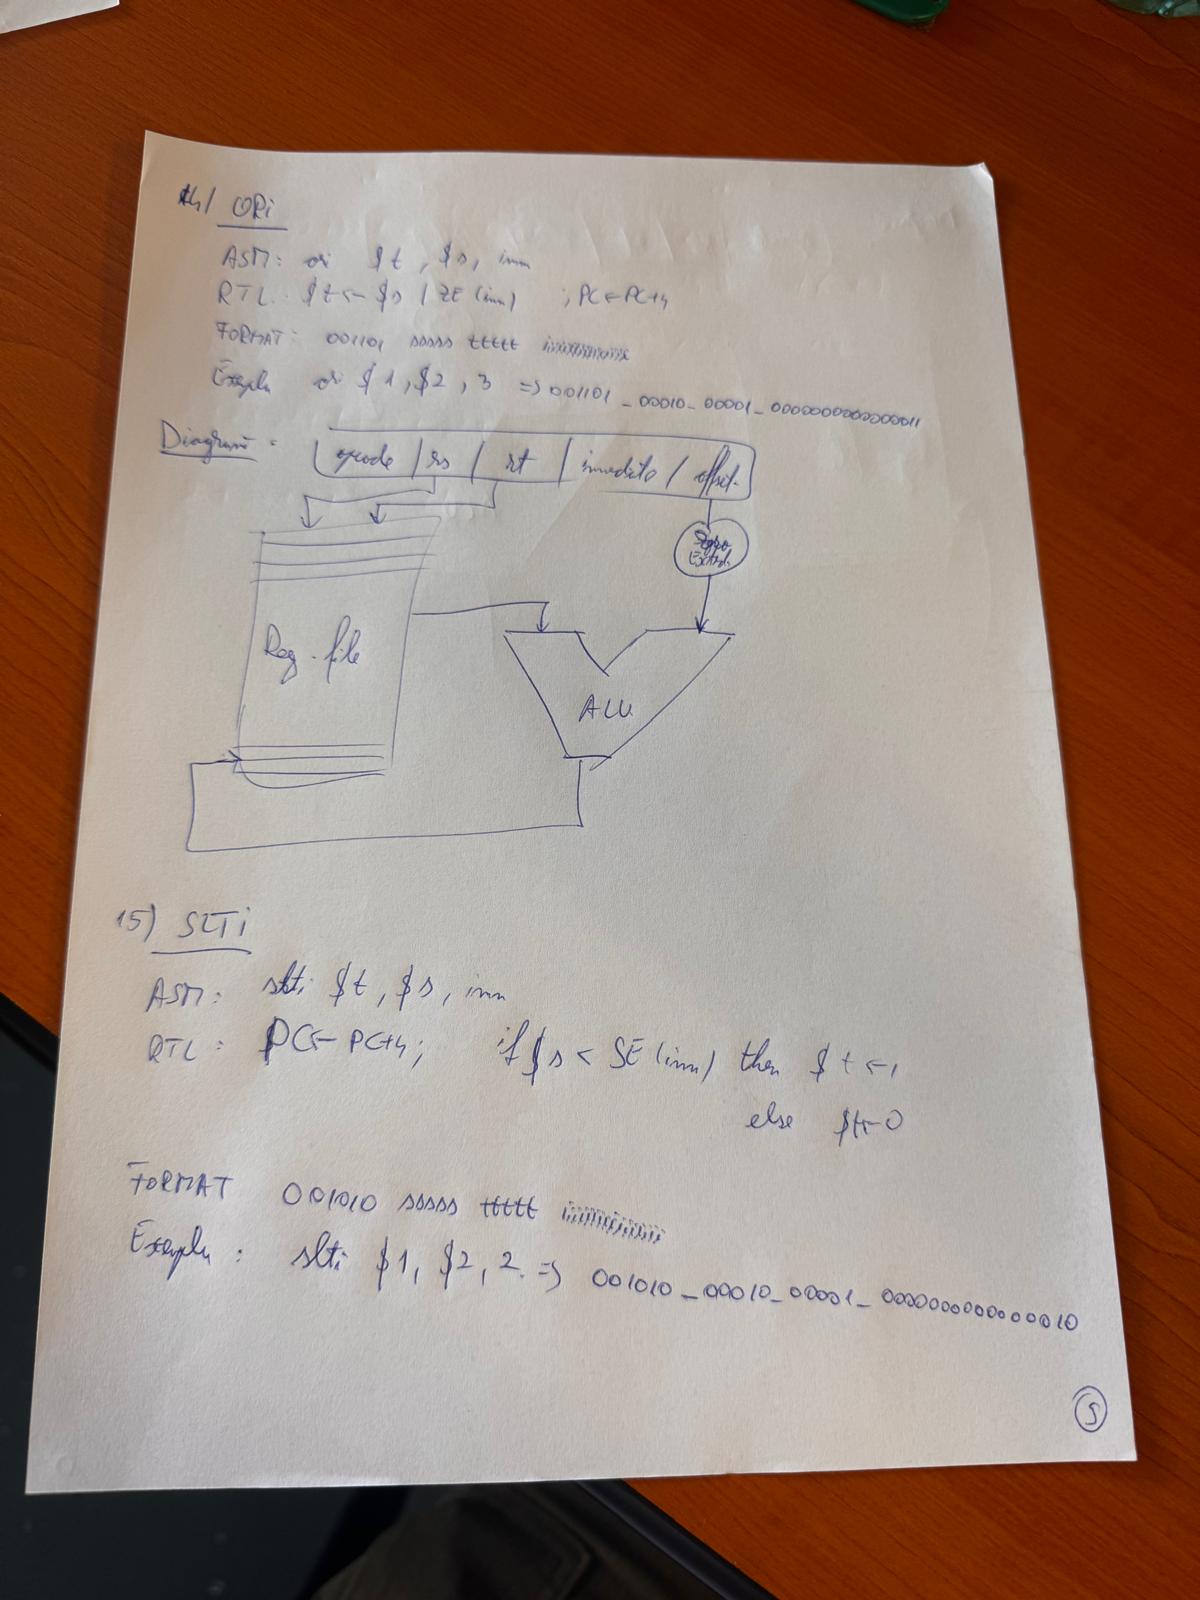 14) ORi
ASM: ori $t, $s, imm
RTL: $t ← $s | ZE (imm) ; PC ← PC+4
FORMAT: 001101 sssss ttttt iiiiiiiiiiiiiiii
Exemplu ori $1, $2, 3 => 001101_00010_00001_0000000000000011
Diagramă:
opcode | rs | rt | immediate / offset
Extend
Reg. file
ALU
15) SLTi
ASM: slti $t, $s, imm
RTL: PC ← PC+4; if $s < SE (imm) then $t ← 1
else $t ← 0
FORMAT 001010 sssss ttttt iiiiiiiiiiiiiiii
Exemplu: slti $1, $2, 2 => 001010_00010_00001_0000000000000010
5